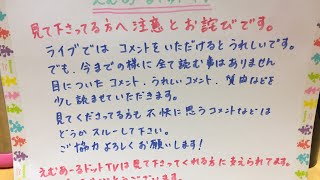 見て下さってる方へ注意とお詫びです。
ライブでは コメントをいただけるとうれしいです。
でも、今までの様に全て読む事はありません
目についたコメント、うれしいコメント、質問などを
少し読ませていただきます。
見てくださってる方も 不快に思うコメントなどは
どうか スルーして下さい。
ご協力よろしくお願いします!
えむあーるドットTVは見て下さってくれる方に支えられてます。